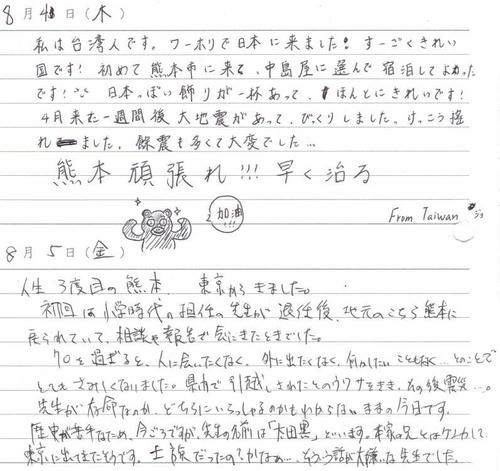 8月4日(木)
私は台湾人です。ワーホリで日本に来ました! すーごくきれい
国です! 初めて熊本市に来る、中島屋に選んで宿泊してよかった
です! 日本っぽい飾りが一杯あって、ほんとにきれいです!
4月来た一週間後大地震があって、びっくりしました。けっこう揺
れました、餘震も多くて大変でした…
熊本頑張れ!!! 早く治る
加油!!!
From Taiwan
8月5日(金)
人生3度目の熊本 東京からきました。
初回は小学時代の担任の先生が退任後、地元のこちら熊本に
戻られていて、相談や報告で会にきたときでした。
70を過ぎると、人に会いたくなく、外に出たくなく、何かしたいこともなく…とのことで
とてもさみしくないました。県内で引越しされたとのウワサをきき、その後震災…。
先生が存命なのか、どちらにいらっしゃるのかもわからないままの今日です。
歴史が苦手なため、今ごろですが、先生の名前は「太田黒」といいます。本家の兄とはケンカして
東京に出てきたそうです。士族だったのかなぁ…そういう話が大嫌いな先生でした。